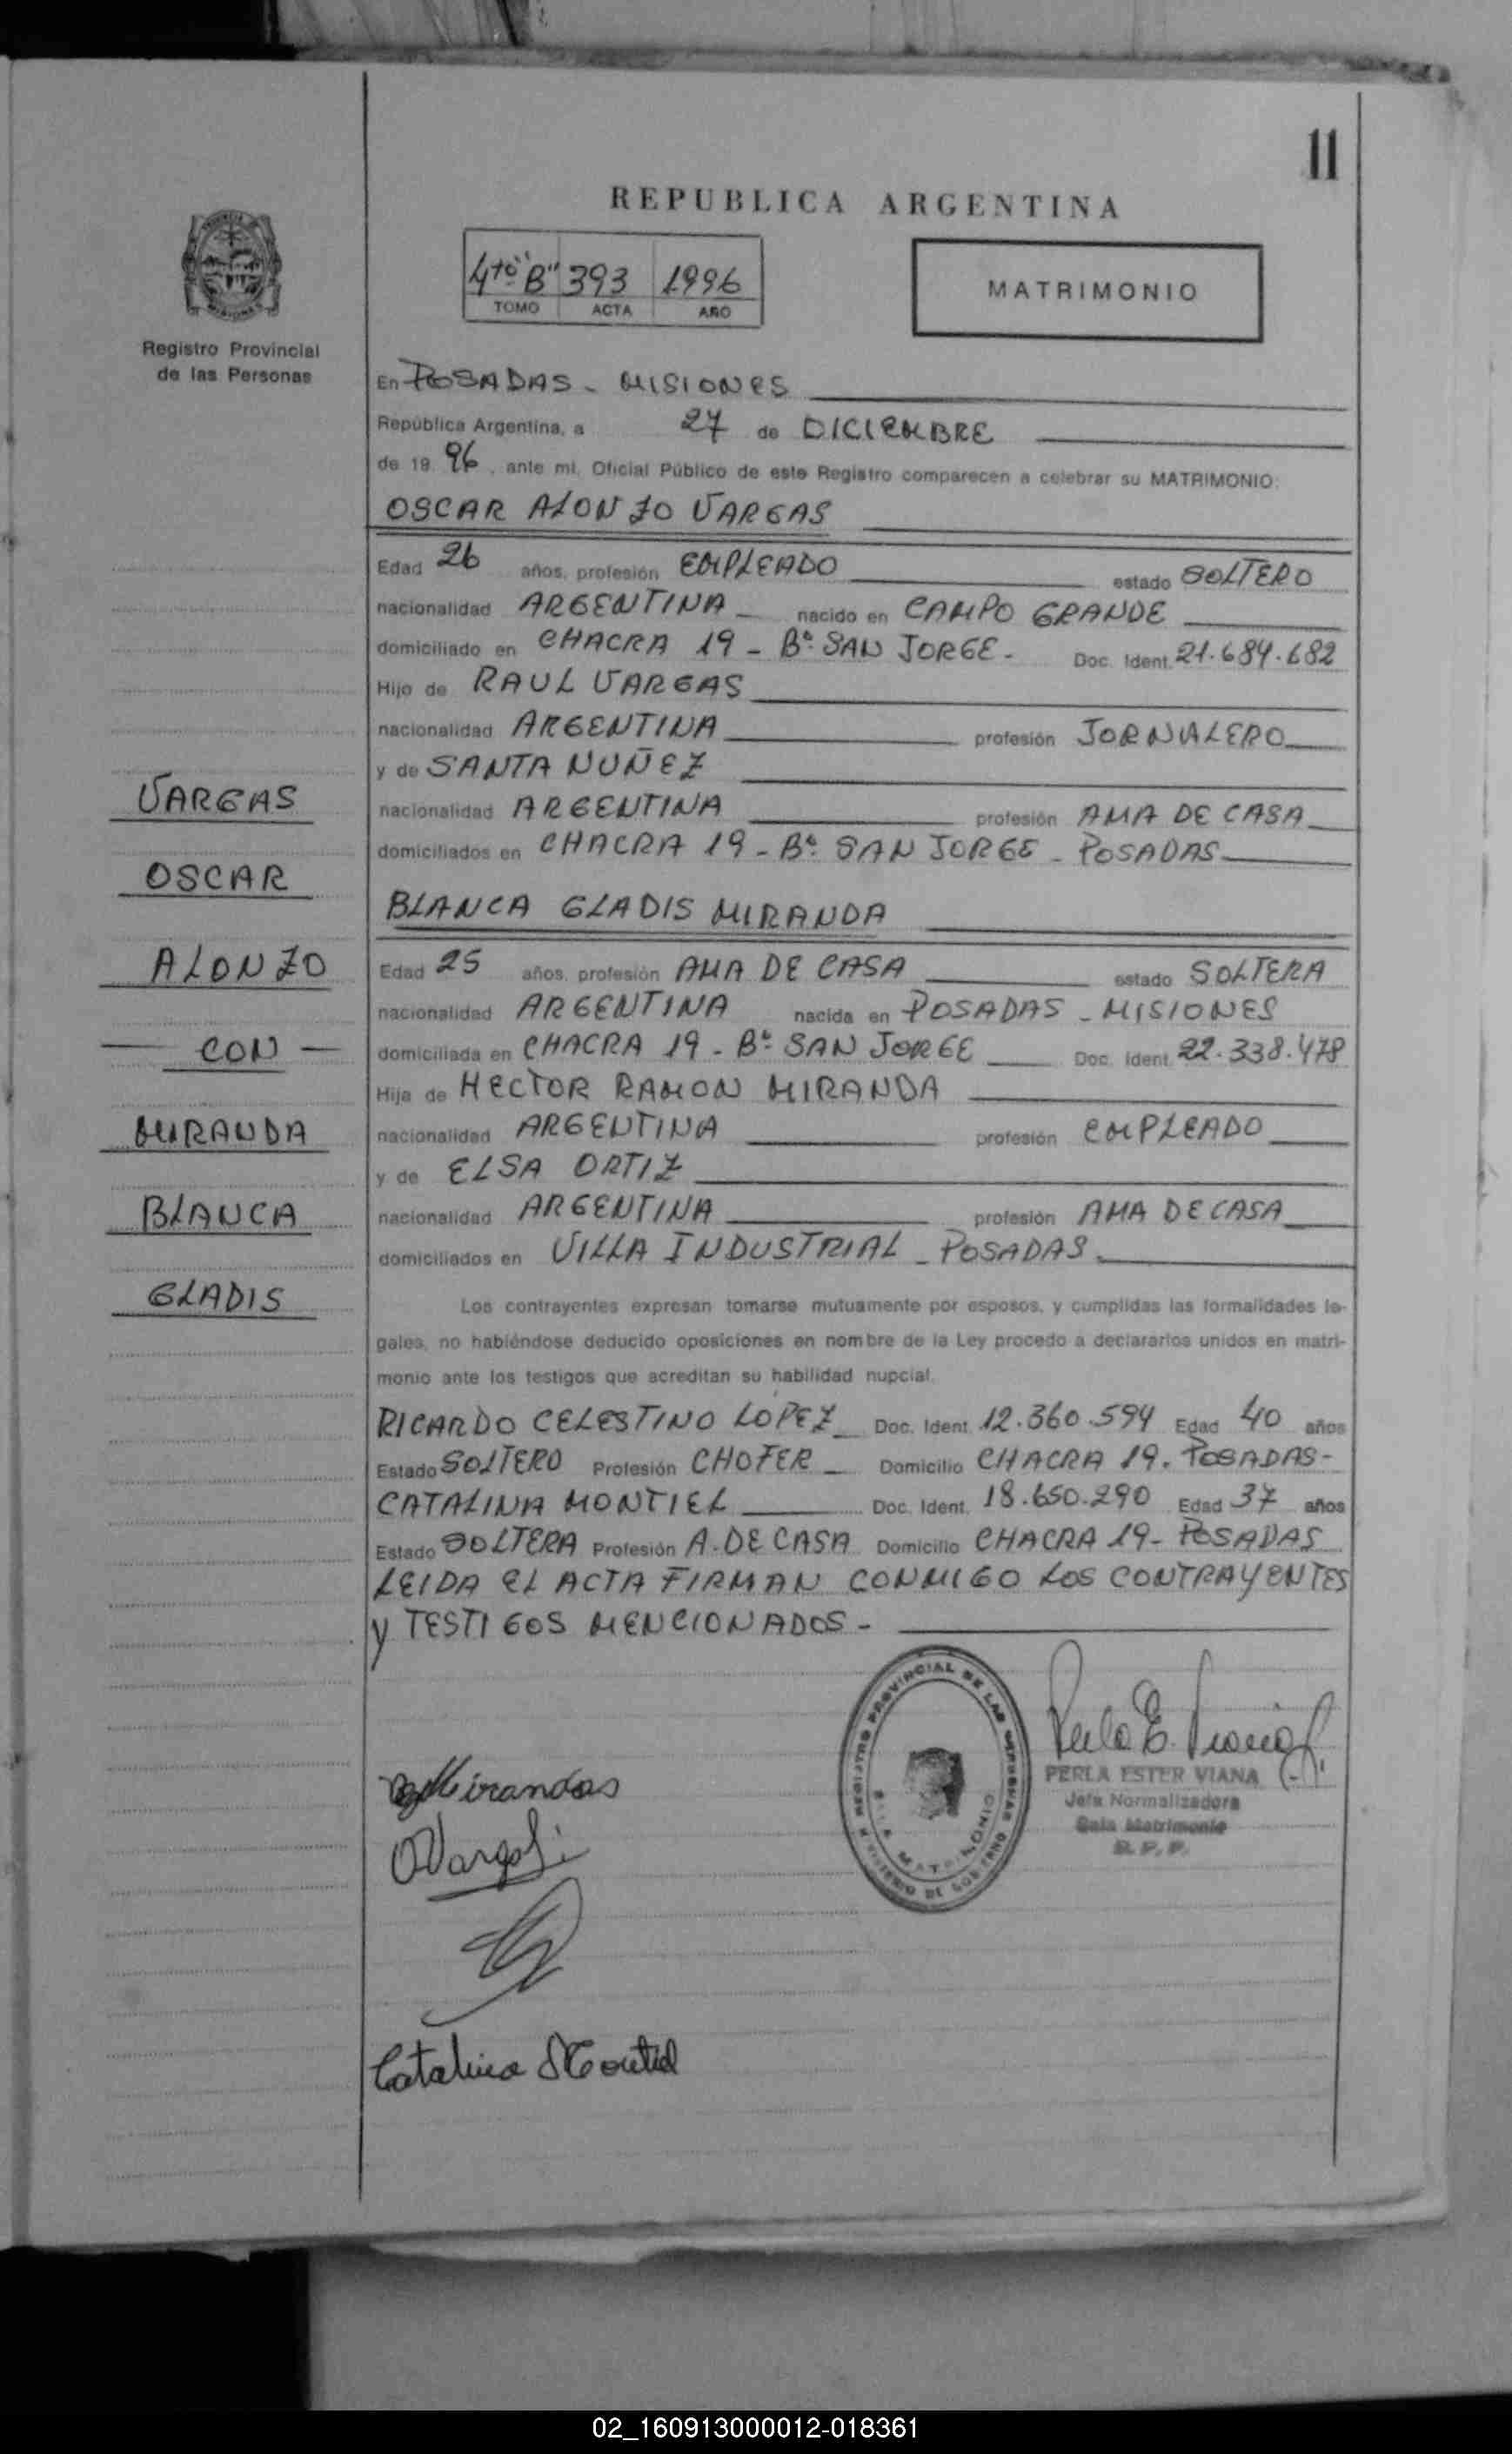 11
REPUBLICA ARGENTINA
4to "B" 393 1996
TOMO ACTA AÑO
MATRIMONIO
Registro Provincial
de las Personas
En POSADAS - MISIONES
República Argentina, a 27 de DICIEMBRE
de 19 96, ante mí, Oficial Público de este Registro comparecen a celebrar su MATRIMONIO:
OSCAR ALONZO VARGAS
Edad 26 años, profesión EMPLEADO estado SOLTERO
nacionalidad ARGENTINA nacido en CAMPO GRANDE
domiciliado en CHACRA 19 - Bº SAN JORGE - Doc. Ident. 21.684.682
Hijo de RAUL VARGAS
nacionalidad ARGENTINA profesión JORNALERO
y de SANTA NUÑEZ
nacionalidad ARGENTINA profesión AMA DE CASA
domiciliados en CHACRA 19 - Bº SAN JORGE - POSADAS
BLANCA GLADIS MIRANDA
Edad 25 años, profesión AMA DE CASA estado SOLTERA
nacionalidad ARGENTINA nacida en POSADAS - MISIONES
domiciliada en CHACRA 19 - Bº SAN JORGE Doc. Ident. 22.338.478
Hija de HECTOR RAMON MIRANDA
nacionalidad ARGENTINA profesión EMPLEADO
y de ELSA ORTIZ
nacionalidad ARGENTINA profesión AMA DE CASA
domiciliados en VILLA INDUSTRIAL - POSADAS
VARGAS
OSCAR
ALONZO
— CON —
MIRANDA
BLANCA
GLADIS
Los contrayentes expresan tomarse mutuamente por esposos, y cumplidas las formalidades le-
gales, no habiéndose deducido oposiciones en nombre de la Ley procedo a declararlos unidos en matri-
monio ante los testigos que acreditan su habilidad nupcial.
RICARDO CELESTINO LOPEZ Doc. Ident. 12.360.594 Edad 40 años
Estado SOLTERO Profesión CHOFER Domicilio CHACRA 19. POSADAS-
CATALINA MONTIEL Doc. Ident. 18.650.290 Edad 37 años
Estado SOLTERA Profesión A. DE CASA Domicilio CHACRA 19 - POSADAS
LEIDA EL ACTA FIRMAN CONMIGO LOS CONTRAYENTES
y TESTIGOS MENCIONADOS -
REGISTRO PROVINCIAL DE LAS PERSONAS
SALA MATRIMONIO
MINISTERIO DE GOBIERNO
Perla E. Viana
PERLA ESTER VIANA
Jefa Normalizadora
Sala Matrimonio
R. P. P.
Mirandas
OVargas
Catalina Montiel
02_160913000012-018361